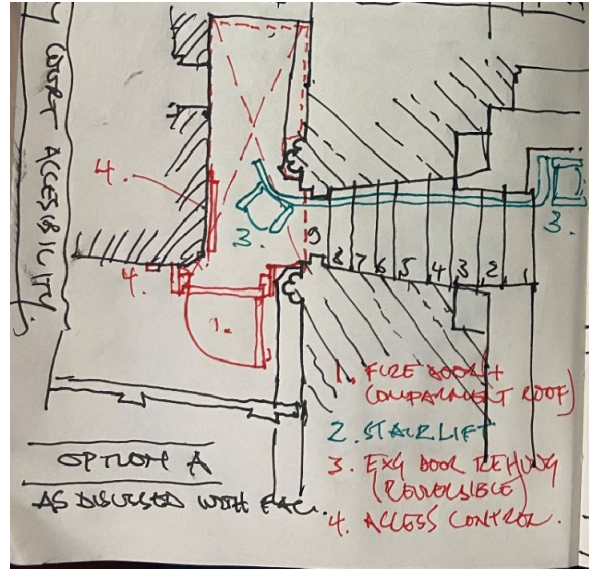 COURT ACCESSIBILITY.
4.
3.
3.
9
8 7 6 5 4 3 2 1
4.
1.
1. FIRE DOOR +
COMPARMENT ROOF)
2. STAIRLIFT
3. EXG DOOR REHUNG
(REVERSIBLE)
4. ACCESS CONTROL.
OPTION A
AS DISCUSSED WITH